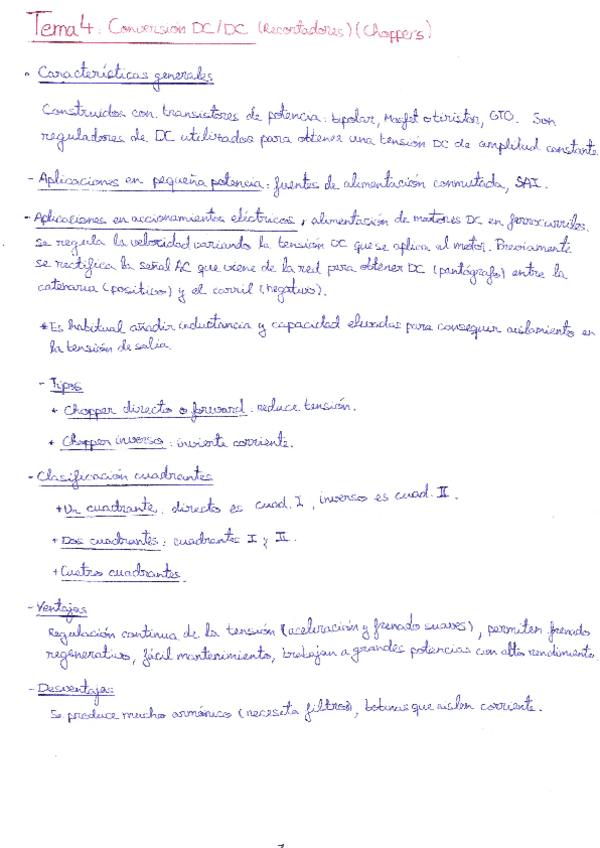 Tema 4: Conversión DC/DC (Recortadores) (Choppers)
• Características generales
Construidos con transistores de potencia: bipolar, Mosfet o tiristor, GTO. Son
reguladores de DC utilizados para obtener una tensión DC de amplitud constante.
- Aplicaciones en pequeña potencia: fuentes de alimentación conmutada, SAI.
- Aplicaciones en accionamientos eléctricos, alimentación de motores DC en ferrocarriles.
se regula la velocidad variando la tensión DC que se aplica al motor. Previamente
se rectifica la señal AC que viene de la red para obtener DC (pantógrafo) entre la
catenaria (positivo) y el carril (negativo).
* Es habitual añadir inductancia y capacidad elevadas para conseguir aislamiento en
la tensión de salia.
- Tipos
+ Chopper directo o forward: reduce tensión.
+ Chopper inverso: invierte corriente.
- Clasificación cuadrantes
+ Un cuadrante: directo es cuad. I, inverso es cuad. II.
+ Dos cuadrantes: cuadrantes I y II.
+ Cuatro cuadrantes.
- Ventajas
Regulación continua de la tensión (aceleración y frenado suaves), permiten frenado
regenerativo, fácil mantenimiento, trabajan a grandes potencias con alto rendimiento.
- Desventajas:
Se produce mucho armónico (necesita filtros), bobinas que aislen corriente.